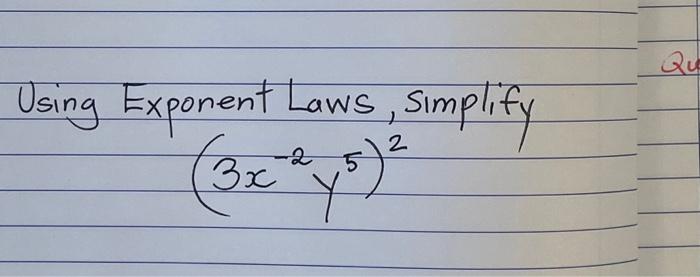 Using Exponent Laws, simplify
(3x⁻²y⁵)²
Qu